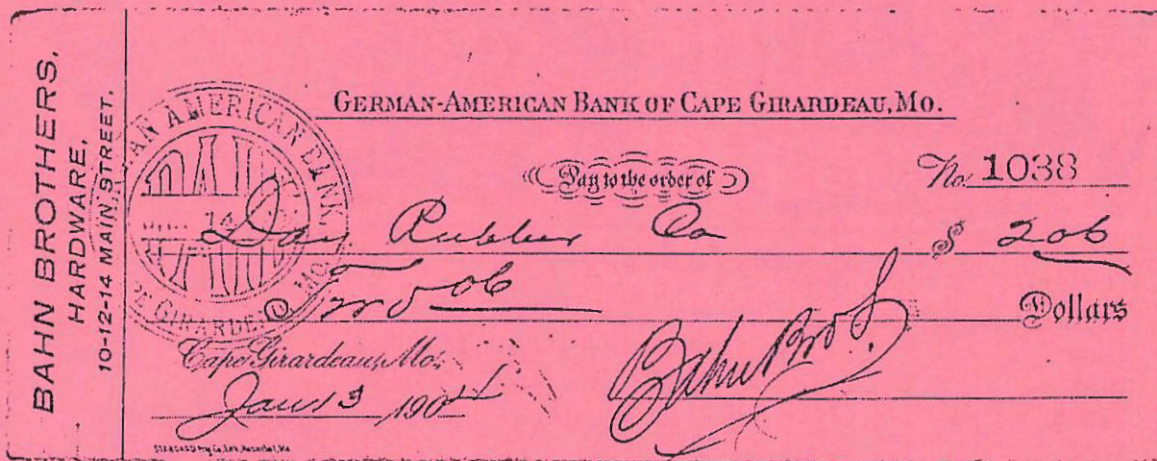 BAHN BROTHERS,
HARDWARE,
10-12-14 MAIN STREET.
GERMAN-AMERICAN BANK OF CAPE GIRARDEAU, MO.
Pay to the order of
No. 1038
Day Rubber Co $ 206
Two 06 Dollars
Cape Girardeau, Mo.
Jan 13 1904
Bahn Bros.
AN AMERICAN BANK
PAID
14
PE GIRARDEAU MO.